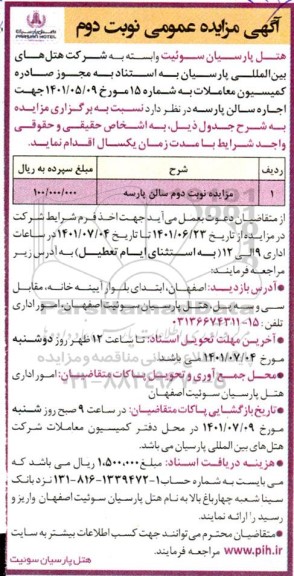 هتل پارسیان
PARSIAN HOTEL
آگهی مزایده عمومی نوبت دوم
هتل پارسیان سوئیت وابسته به شرکت هتل‌های
بین‌المللی پارسیان به استناد به مجوز صادره
کمیسیون معاملات به شماره ۱۵ مورخ ۱۴۰۱/۰۵/۰۹ جهت
اجاره سالن پارسه در نظر دارد نسبت به برگزاری مزایده
به شرح جدول ذیل، به اشخاص حقیقی و حقوقی
واجد شرایط با مدت زمان یکسال اقدام نمایند.
ردیف شرح مبلغ سپرده به ریال
۱ مزایده نوبت دوم سالن پارسه ۱۰۰/۰۰۰/۰۰۰
از متقاضیان دعوت بعمل می آید جهت اخذ فرم شرایط شرکت
در مزایده از تاریخ ۱۴۰۱/۰۶/۲۳ تا تاریخ ۱۴۰۱/۰۷/۰۴ در ساعات
اداری ۹ الی ۱۲ (به استثنای ایام تعطیل) به آدرس زیر
مراجعه فرمایند:
آدرس بازدید: اصفهان، ابتدای بلوار آیینه خانه، مقابل
سی و سه پل، هتل پارسیان سوئیت اصفهان، امور اداری
تلفن: ۱۵-۰۳۱۳۶۶۷۴۳۱۱
آخرین مهلت تحویل اسناد: تا ساعت ۱۲ ظهر روز دوشنبه
مورخ ۱۴۰۱/۰۷/۰۴ می باشد.
محل جمع آوری و تحویل پاکات متقاضیان: امور اداری
هتل پارسیان سوئیت اصفهان
تاریخ بازگشایی پاکات متقاضیان: در ساعت ۹ صبح روز شنبه
مورخ ۱۴۰۱/۰۷/۰۹ در محل دفتر کمیسیون معاملات شرکت
هتل های بین المللی پارسیان می باشد.
هزینه دریافت اسناد: مبلغ ۱,۵۰۰,۰۰۰ ریال می باشد که
می بایست به شماره حساب ۱-۱۳۳۹۴۷۲-۸۱۶-۱۳۱ نزد بانک
سینا شعبه چهارباغ بالا به نام هتل پارسیان سوئیت اصفهان واریز و
رسید را ارائه نمایند.
متقاضیان محترم می توانند جهت کسب اطلاعات بیشتر به سایت
www.pih.ir مراجعه فرمایند.
هتل پارسیان سوئیت